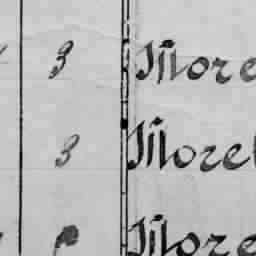 3 More
3 Morel
More